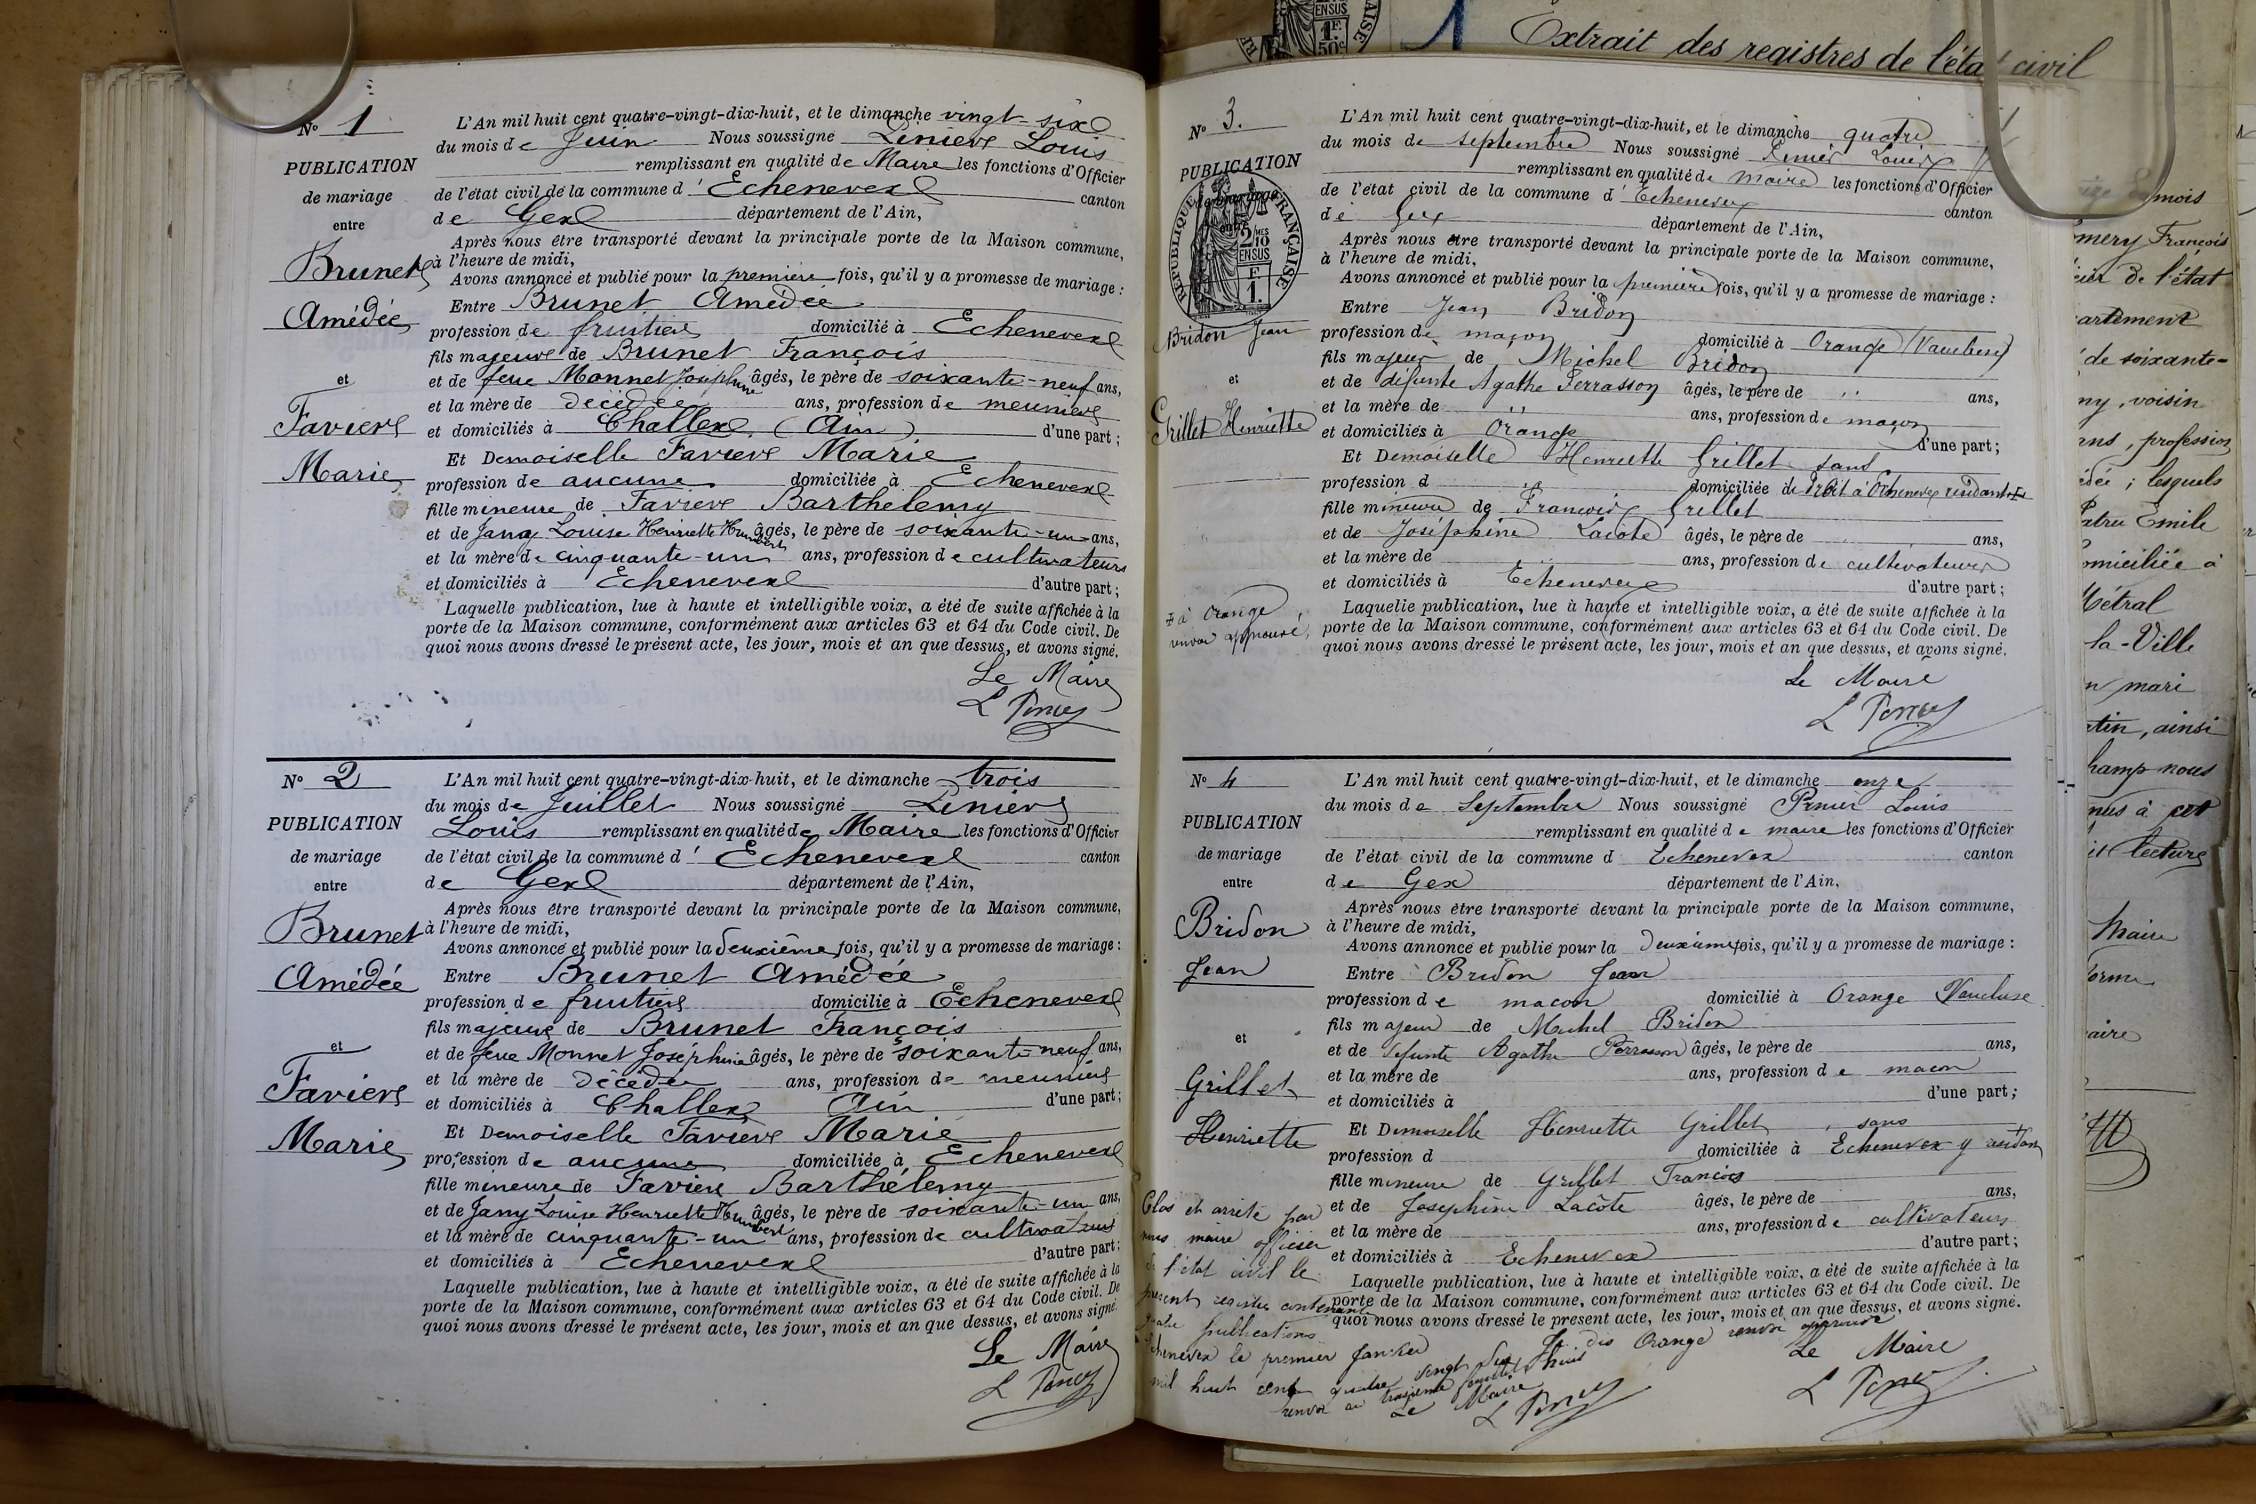 N° 1
PUBLICATION
de mariage
entre
Brunet
Amédée
et
Favier
Marie
L'An mil huit cent quatre-vingt-dix-huit, et le dimanche vingt-six
du mois de Juin Nous soussigné Louis
remplissant en qualité de Maire les fonctions d'Officier
de l'état civil de la commune d' Echenevex canton
de Gex département de l'Ain,
Après nous être transporté devant la principale porte de la Maison commune,
à l'heure de midi,
Avons annoncé et publié pour la première fois, qu'il y a promesse de mariage :
Entre Brunet Amédée
profession de fruitier domicilié à Echenevex
fils majeur de Brunet François
et de feue Monnet Joséphine âgés, le père de soixante-neuf ans,
et la mère de décédée ans, profession de meunier
et domiciliés à Challex (Ain) d'une part ;
Et Demoiselle Favier Marie
profession de aucune domiciliée à Echenevex
fille mineure de Favier Barthélemy
et de Jany Louise Henriette Humbert âgés, le père de soixante-un ans,
et la mère de cinquante-un ans, profession de cultivateurs
et domiciliés à Echenevex d'autre part ;
Laquelle publication, lue à haute et intelligible voix, a été de suite affichée à la
porte de la Maison commune, conformément aux articles 63 et 64 du Code civil. De
quoi nous avons dressé le présent acte, les jour, mois et an que dessus, et avons signé.
Le Maire
N° 2
PUBLICATION
de mariage
entre
Brunet
Amédée
et
Favier
Marie
L'An mil huit cent quatre-vingt-dix-huit, et le dimanche trois
du mois de Juillet Nous soussigné
Louis remplissant en qualité de Maire les fonctions d'Officier
de l'état civil de la commune d' Echenevex canton
de Gex département de l'Ain,
Après nous être transporté devant la principale porte de la Maison commune,
à l'heure de midi,
Avons annoncé et publié pour la deuxième fois, qu'il y a promesse de mariage :
Entre Brunet Amédée
profession de fruitier domicilié à Echenevex
fils majeur de Brunet François
et de feue Monnet Joséphine âgés, le père de soixante-neuf ans,
et la mère de décédée ans, profession de meunier
et domiciliés à Challex Ain d'une part ;
Et Demoiselle Favier Marie
profession de aucune domiciliée à Echenevex
fille mineure de Favier Barthélemy
et de Jany Louise Henriette Humbert âgés, le père de soixante-un ans,
et la mère de cinquante-un ans, profession de cultivateurs
et domiciliés à Echenevex d'autre part ;
Laquelle publication, lue à haute et intelligible voix, a été de suite affichée à la
porte de la Maison commune, conformément aux articles 63 et 64 du Code civil. De
quoi nous avons dressé le présent acte, les jour, mois et an que dessus, et avons signé.
Le Maire
Extrait des registres de l'état civil
N° 3.
PUBLICATION
de mariage
entre
RÉPUBLIQUE FRANÇAISE
2/10 MES
EN SUS
1 F.
Bridon Jean
et
Grillet Henriette
à Orange
renvoi approuvé
L'An mil huit cent quatre-vingt-dix-huit, et le dimanche quatre
du mois de septembre Nous soussigné Louis
remplissant en qualité de maire les fonctions d'Officier
de l'état civil de la commune d' Echenevex canton
de Gex département de l'Ain,
Après nous être transporté devant la principale porte de la Maison commune,
à l'heure de midi,
Avons annoncé et publié pour la première fois, qu'il y a promesse de mariage :
Entre Jean Bridon
profession de maçon domicilié à Orange (Vaucluse)
fils majeur de Michel Bridon
et de défunte Agathe Perrasson âgés, le père de ans,
et la mère de ans, profession de maçon
et domiciliés à Orange d'une part ;
Et Demoiselle Henriette Grillet sans
profession d domiciliée de droit à Echenevex résidant
fille mineure de François Grillet
et de Joséphine Lacôte âgés, le père de ans,
et la mère de ans, profession de cultivateurs
et domiciliés à Echenevex d'autre part ;
Laquelle publication, lue à haute et intelligible voix, a été de suite affichée à la
porte de la Maison commune, conformément aux articles 63 et 64 du Code civil. De
quoi nous avons dressé le présent acte, les jour, mois et an que dessus, et avons signé.
Le Maire
N° 4
PUBLICATION
de mariage
entre
Bridon
Jean
et
Grillet
Henriette
L'An mil huit cent quatre-vingt-dix-huit, et le dimanche onze
du mois de Septembre Nous soussigné Louis
remplissant en qualité de maire les fonctions d'Officier
de l'état civil de la commune d Echenevex canton
de Gex département de l'Ain,
Après nous être transporté devant la principale porte de la Maison commune,
à l'heure de midi,
Avons annoncé et publié pour la deuxième fois, qu'il y a promesse de mariage :
Entre Bridon Jean
profession de macon domicilié à Orange Vaucluse
fils majeur de Michel Bridon
et de défunte Agathe Perrasson âgés, le père de ans,
et la mère de ans, profession de macon
et domiciliés à d'une part ;
Et Demoiselle Henriette Grillet, sans
profession d domiciliée à Echenevex y résidant
fille mineure de Grillet François
et de Joséphine Lacôte âgés, le père de ans,
et la mère de ans, profession de cultivateurs
et domiciliés à Echenevex d'autre part ;
Laquelle publication, lue à haute et intelligible voix, a été de suite affichée à la
porte de la Maison commune, conformément aux articles 63 et 64 du Code civil. De
quoi nous avons dressé le présent acte, les jour, mois et an que dessus, et avons signé.
Orange renvoi approuvé
Le Maire
Clos et arrêté par
nous maire officier
de l'état civil le
présent registre contenant
quatre publications
Echenevex le premier Janvier
mil huit cent quatre vingt dix huit
Le Maire
mois
François
de l'état
de soixante-
voisin
profession
lesquels
Emile
domiciliée à
Métral
la-Ville
mari
ainsi
nous
à cet
lecture
Maire